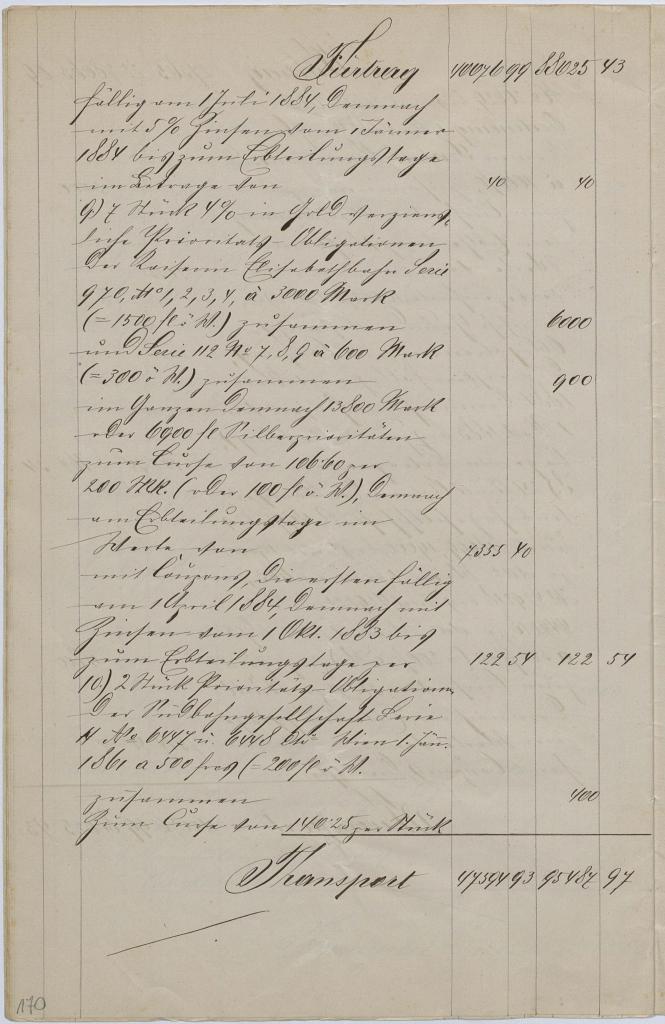 Fürtrag 40076 99 88025 43
fällig am 1 Juli 1884, demnach
mit 5% Zinsen vom 1 Jänner
1884 bis zum Erbteilungstage
im Betrage von 40 40
9.) 7 Stück 4% in Gold verzins-
liche Prioritäts-Obligationen
der Kaiserin Elisabethbahn Serie
970, No 1, 2, 3, 4, à 3000 Mark
(=1500 fl ö W.) zusammen 6000
und Serie 112 No 7, 8, 9 à 600 Mark
(=300 ö W.) zusammen 900
im Ganzen demnach 13800 Mark
oder 6900 fl Silberprioritäten
zum Curse von 106.60 per
200 Mk. (oder 100 fl ö. W.), demnach
am Erbteilungstage im
Werte von 7355 40
mit Coupons, die ersten fällig
am 1 April 1884, demnach mit
Zinsen vom 1 Okt. 1883 bis
zum Erbteilungstage per 122 54 122 54
10.) 2 Stück Prioritäts-Obligationen
der Südbahngesellschaft Serie
No 6447 u. 6448 Wien 1. Jän.
1861 a 500 frcs (=200 fl ö W.
zusammen 400
zum Curse von 140.25 per Stück
Transport 47594 93 95487 97
170